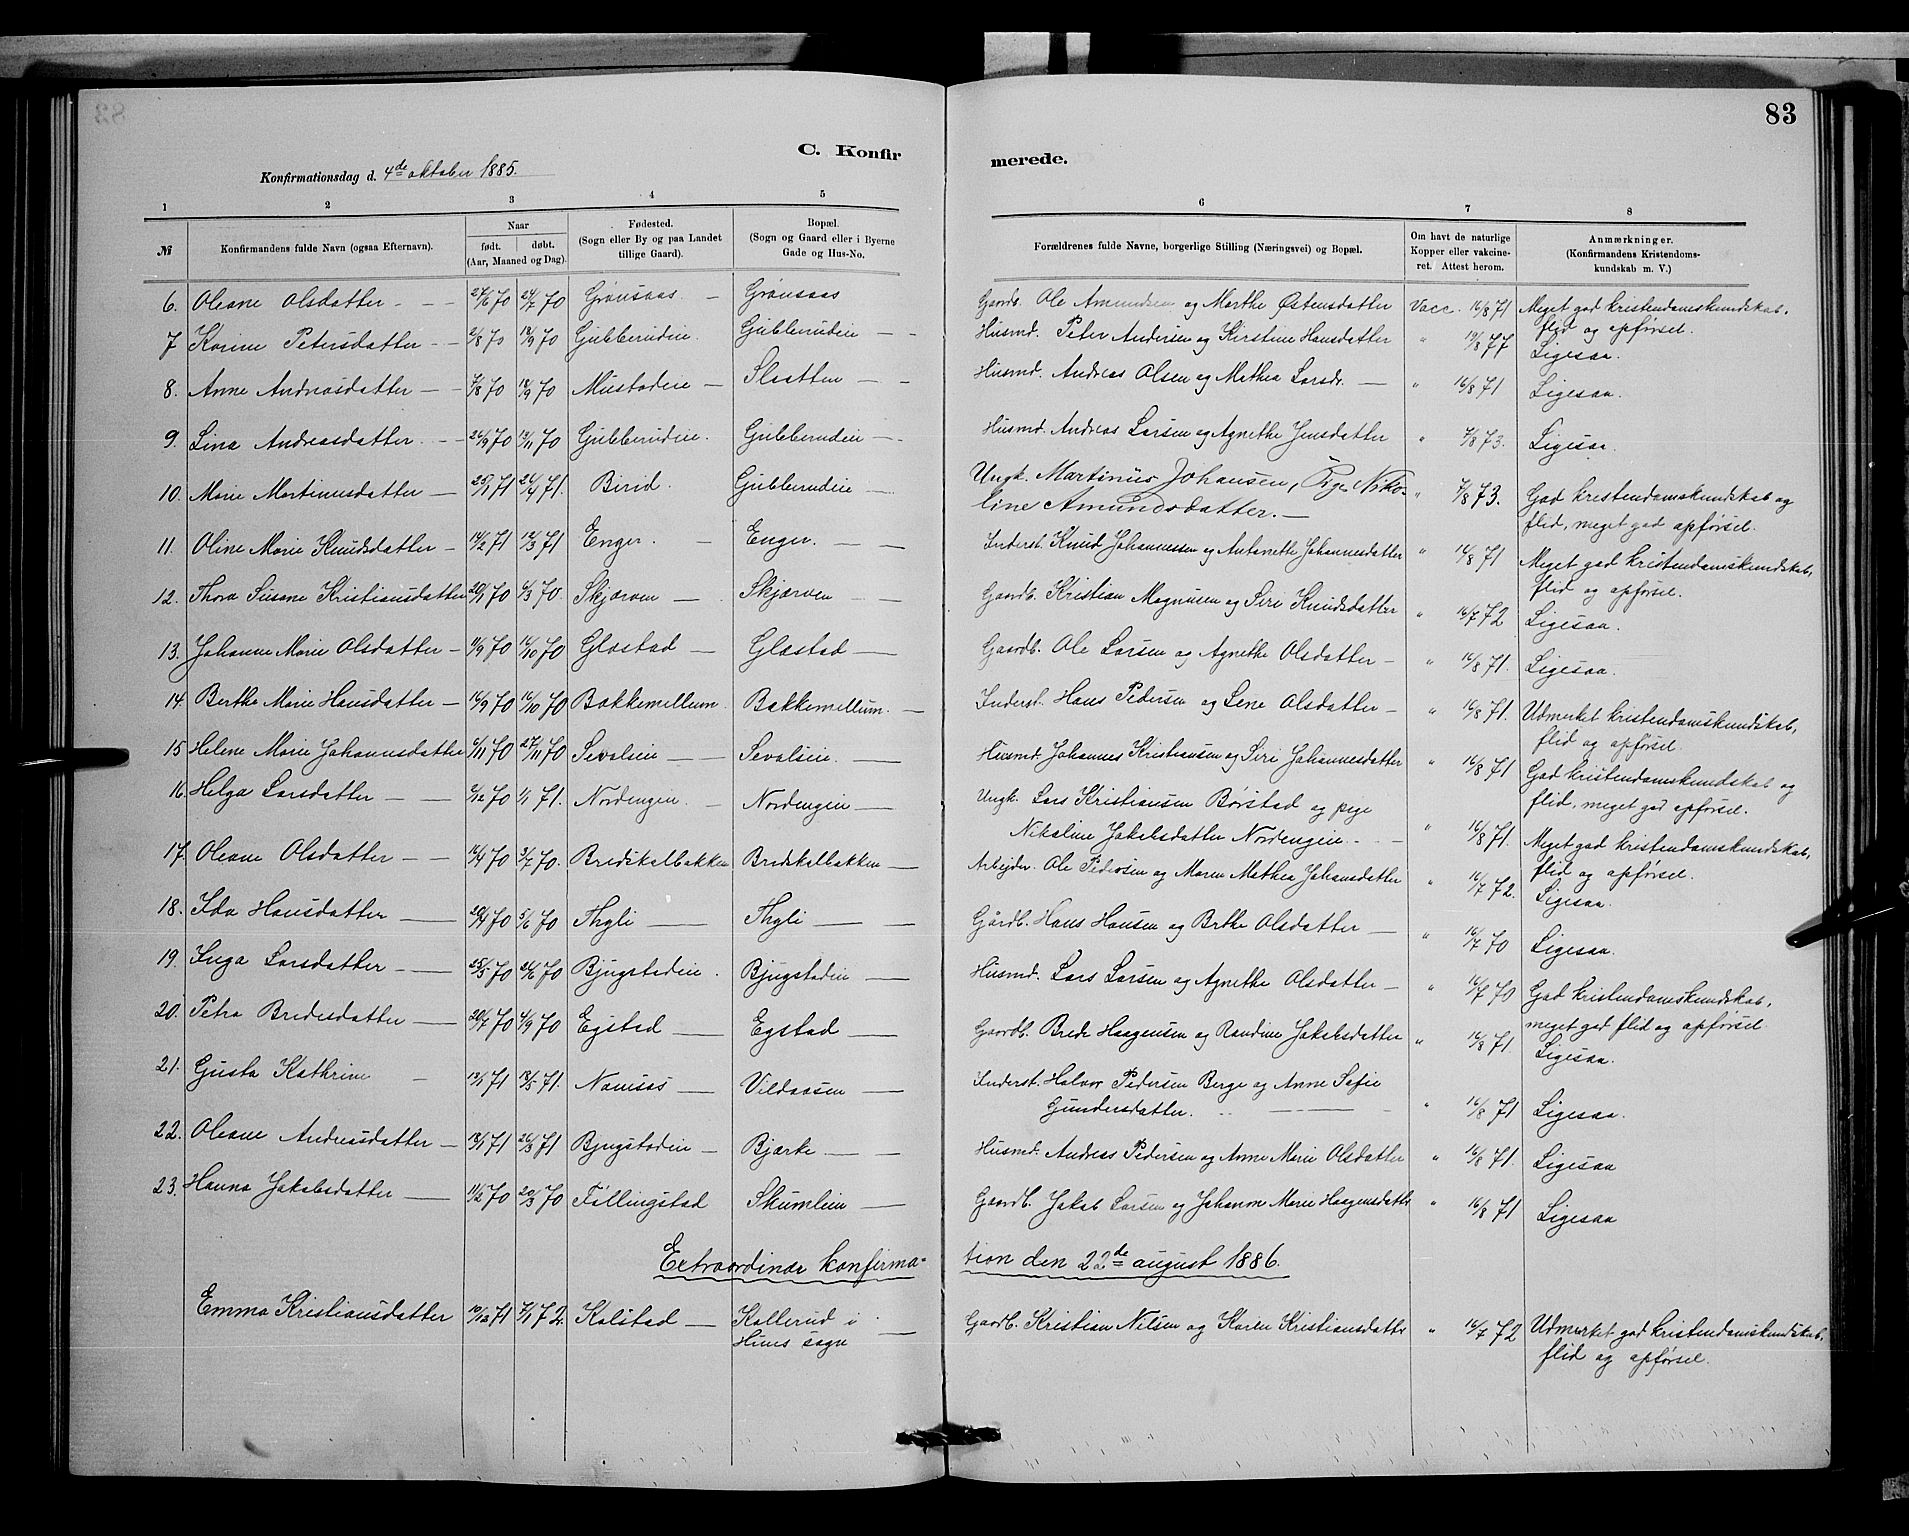 83
C. Konfirmerede.
Konfirmationsdag d. 4de oktober 1885.
1 2 3 4 5 6 7 8
№ Konfirmandens fulde Navn (ogsaa Efternavn). Naar født. døbt. (Aar, Maaned og Dag). Fødested. (Sogn eller By og paa Landet tillige Gaard). Bopæl. (Sogn og Gaard eller i Byerne Gade og Hus-No. Forældrenes fulde Navne, borgerlige Stilling (Næringsvei) og Bopæl. Om havt de naturlige Kopper eller vakcineret. Attest herom. Anmærkninger. (Konfirmandens Kristendomskundskab m. V.)
6. Oleane Olsdatter 24/7 70 Grønsaas Grønsaas Gaardb. Ole Amundsen og Marthe Østensdatter Vacc. 16/8 71 Meget god kristendomskundskab, flid og opførsel.
7 Karine Petersdatter 2/8 70 18/9 70 Gubberudeie Gubberudeie Husmd. Peter Andersen og Kirstine Hansdatter " 19/8 77 Ligesaa.
8. Anne Andreasdatter 7/8 70 18/9 70 Mustadeie Slaatten Husmd. Andreas Olsen og Mathea Larsdr. " 16/8 71 Ligesaa.
9. Lina Andreasdatter 26/9 70 13/11 70 Gubberudeie. Gubberudeie Husmd. Andreas Larsen og Agnethe Jensdatter " 7/8 73. Ligesaa.
10. Marie Martinusdatter 25/1 71 26/4 71. Birid. Gubberudeie Ungk. Martinus Johansen, Pige Nikoline Amundsdatter. " 7/8 73. God kristendomskundskab og flid, meget god opførsel.
11. Oline Marie Knudsdatter 14/2 71 12/3 71 Enger. Enger. Inderst. Knud Johannessen og Antonette Johannesdatter " 16/8 71 Meget god kristendomskundskab, flid og opførsel.
12. Thora Susane Kristiansdatter 20/1 70 6/3 70. Skjærven Skjærven Gaardb. Kristian Magnusen og Siri Knudsdatter " 16/7 72 Ligesaa.
13. Johanne Marie Olsdatter 11/9 70 16/10 70 Glæstad Glæstad Gaardb. Ole Larsen og Agnethe Olsdatter " 16/8 71. Ligesaa.
14. Berthe Marie Hansdatter 16/9 70 16/10 70 Bakkemellum Bakkemellum. Inderst. Hans Pedersen og Lene Olsdatter " 16/8 71. Udmerket kristendomskundskab, flid og opførsel.
15 Helene Marie Johannesdatter 6/11 70 27/11 70 Sevaleie Sevaleie. Husmd. Johannes Kristiansen og Siri Johannesdatter " 16/8 71 God kristendomskundskab og flid, meget god opførsel.
16. Helga Larsdatter 6/12 70 1/1 71. Nordengen. Nordengen Ungk. Lars Kristiansen Børstad og pige Nikoline Jakobsdatter Nordengeie " 16/8 71. Meget god kristendomskundskab, flid og opførsel.
17. Oleane Olsdatter 16/4 70 3/7 70. Bredskalbakken Bredskalbakken Arbejder. Ole Pedersen og Maren Mathea Johansdatter " 16/7 72. Ligesaa.
18. Ida Hansdatter 20/4 70 5/6 70 Thyli Thyli Gårdb. Hans Hansen og Brthe Olsdatter " 16/7 70 Ligesaa.
19. Inga Larsdatter 25/5 70 26/6 70 Bjugstadeie. Bjugstadeie Husmd. Lars Larsen og Agnethe Olsdatter " 16/7 70 God kristendomskundskab, meget god flid og opførsel.
20. Petra Bredesdatter 20/7 70 4/9 70 Egstad Egstad Gaardb. Brede Haagensen og Randine Jakobsdatter " 16/8 71. Ligesaa.
21. Gusta Kathrine 13/1 71 18/5 71. Namsos Vildaasen Inderst. Halvor Pedersen Berge og Anne Sofie Gundersdatter. " 16/8 71 Ligesaa.
22. Oleane Andreasdatter 18/1 71 26/3 71 Bjugstadeie Bjørke Husmd. Andreas Pedersen og Anne Marie Olsdatter " 16/8 71. Ligesaa
23. Hanna Jakobsdatter 11/2 70 20/3 70 Føllingstad Skumleie Gaardb. Jakob Larsen og Johanne Marie Haagensdattr " 16/8 71 Ligesaa
Extraordinær konfirmation den 22de august 1886.
Emma Kristiansdatter 10/12 71 7/1 72. Kolstad Kallerud i Huns sogn Gaardb. Kristian Nilsen og Karen Kristiansdattr " 16/7 72 Udmerket god kristendomskundskab, flid og opførsel.